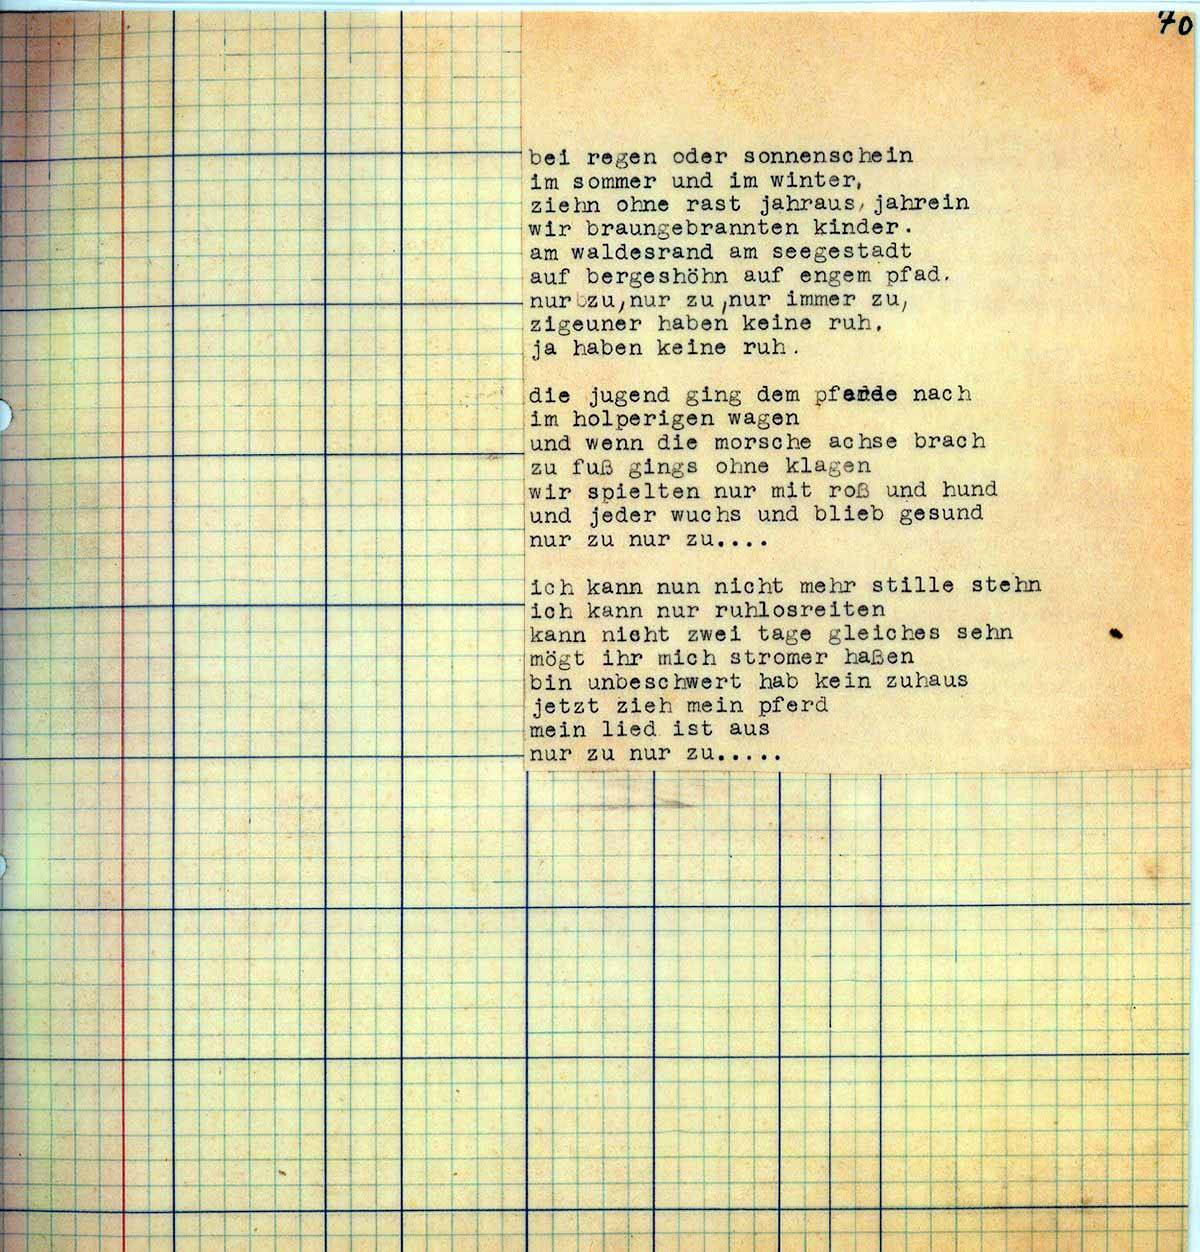 70
bei regen oder sonnenschein
im sommer und im winter,
ziehn ohne rast jahraus, jahrein
wir braungebrannten kinder.
am waldesrand am seegestadt
auf bergeshöhn auf engem pfad.
nur zu,nur zu,nur immer zu,
zigeuner haben keine ruh.
ja haben keine ruh.

die jugend ging dem pferde nach
im holperigen wagen
und wenn die morsche achse brach
zu fuß gings ohne klagen
wir spielten nur mit roß und hund
und jeder wuchs und blieb gesund
nur zu nur zu....

ich kann nun nicht mehr stille stehn
ich kann nur ruhlosreiten
kann nicht zwei tage gleiches sehn
mögt ihr mich stromer haßen
bin unbeschwert hab kein zuhaus
jetzt zieh mein pferd
mein lied ist aus
nur zu nur zu.....